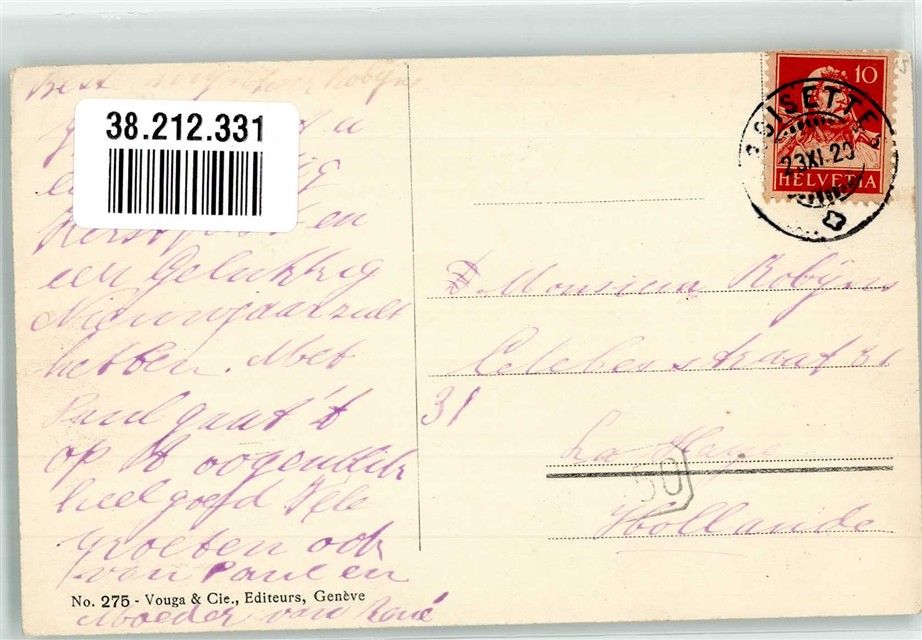 Best
38.212.331
Kerstfeest en
een Gelukkig
Nieuwjaar zult
hebben. Met
Paul gaat 't
op 't oogenblik
heel goed Vele
groeten ook
van Paul en
Moeder van René
No. 275 - Vouga & Cie., Editeurs, Genève
10
GISETTE
23.XI.20
HELVETIA
Monsieur Robijns
Celebesstraat 31
31
La Haye
50
Hollande